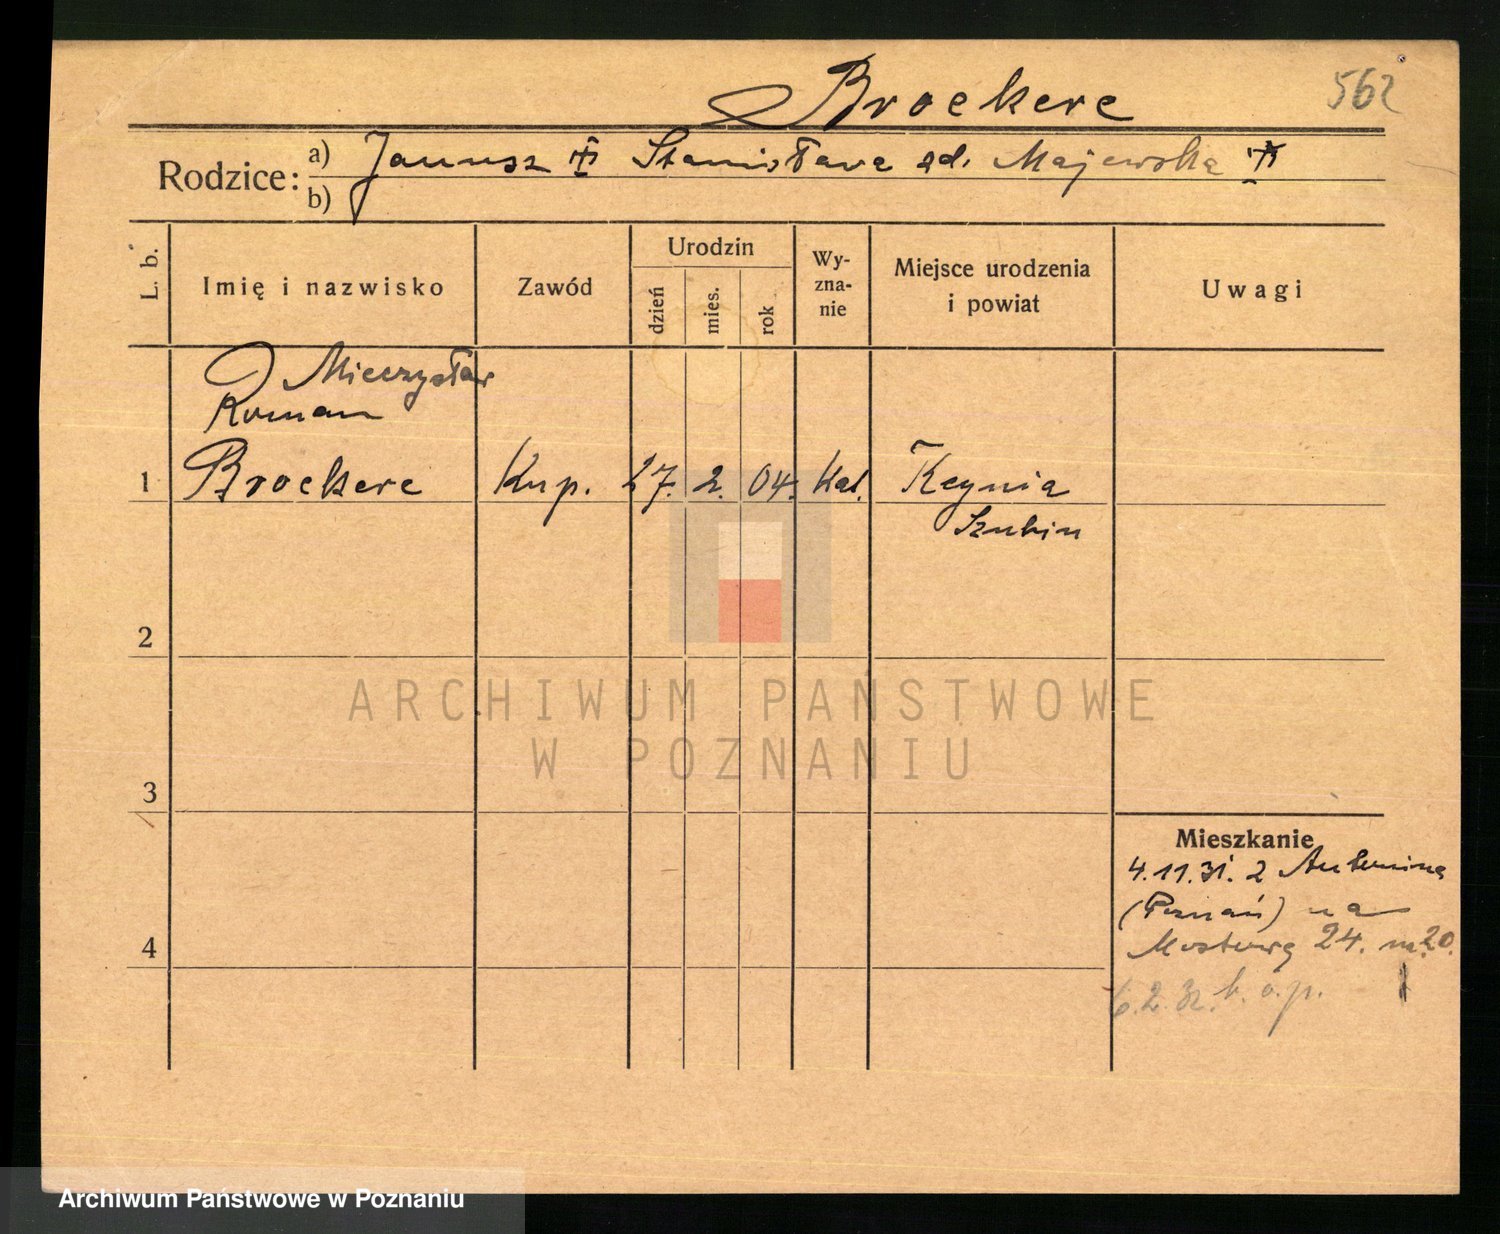 Broekere 562
Rodzice: a) Janusz Stanisława zd. Majewska
b)
L. b. Imię i nazwisko Zawód Urodzin dzień mies. rok Wy-zna-nie Miejsce urodzenia i powiat Uwagi
Mieczysław
Roman
1 Broekere Kup. 27. 2. 04. Kat. Kcynia
Szubin
2
ARCHIWUM PAŃSTWOWE
W POZNANIU
3
Mieszkanie
4.11.31. z Antonina
(Poznań) na
4 Mostową 24. m. 20.
6.2.32.
Archiwum Państwowe w Poznaniu